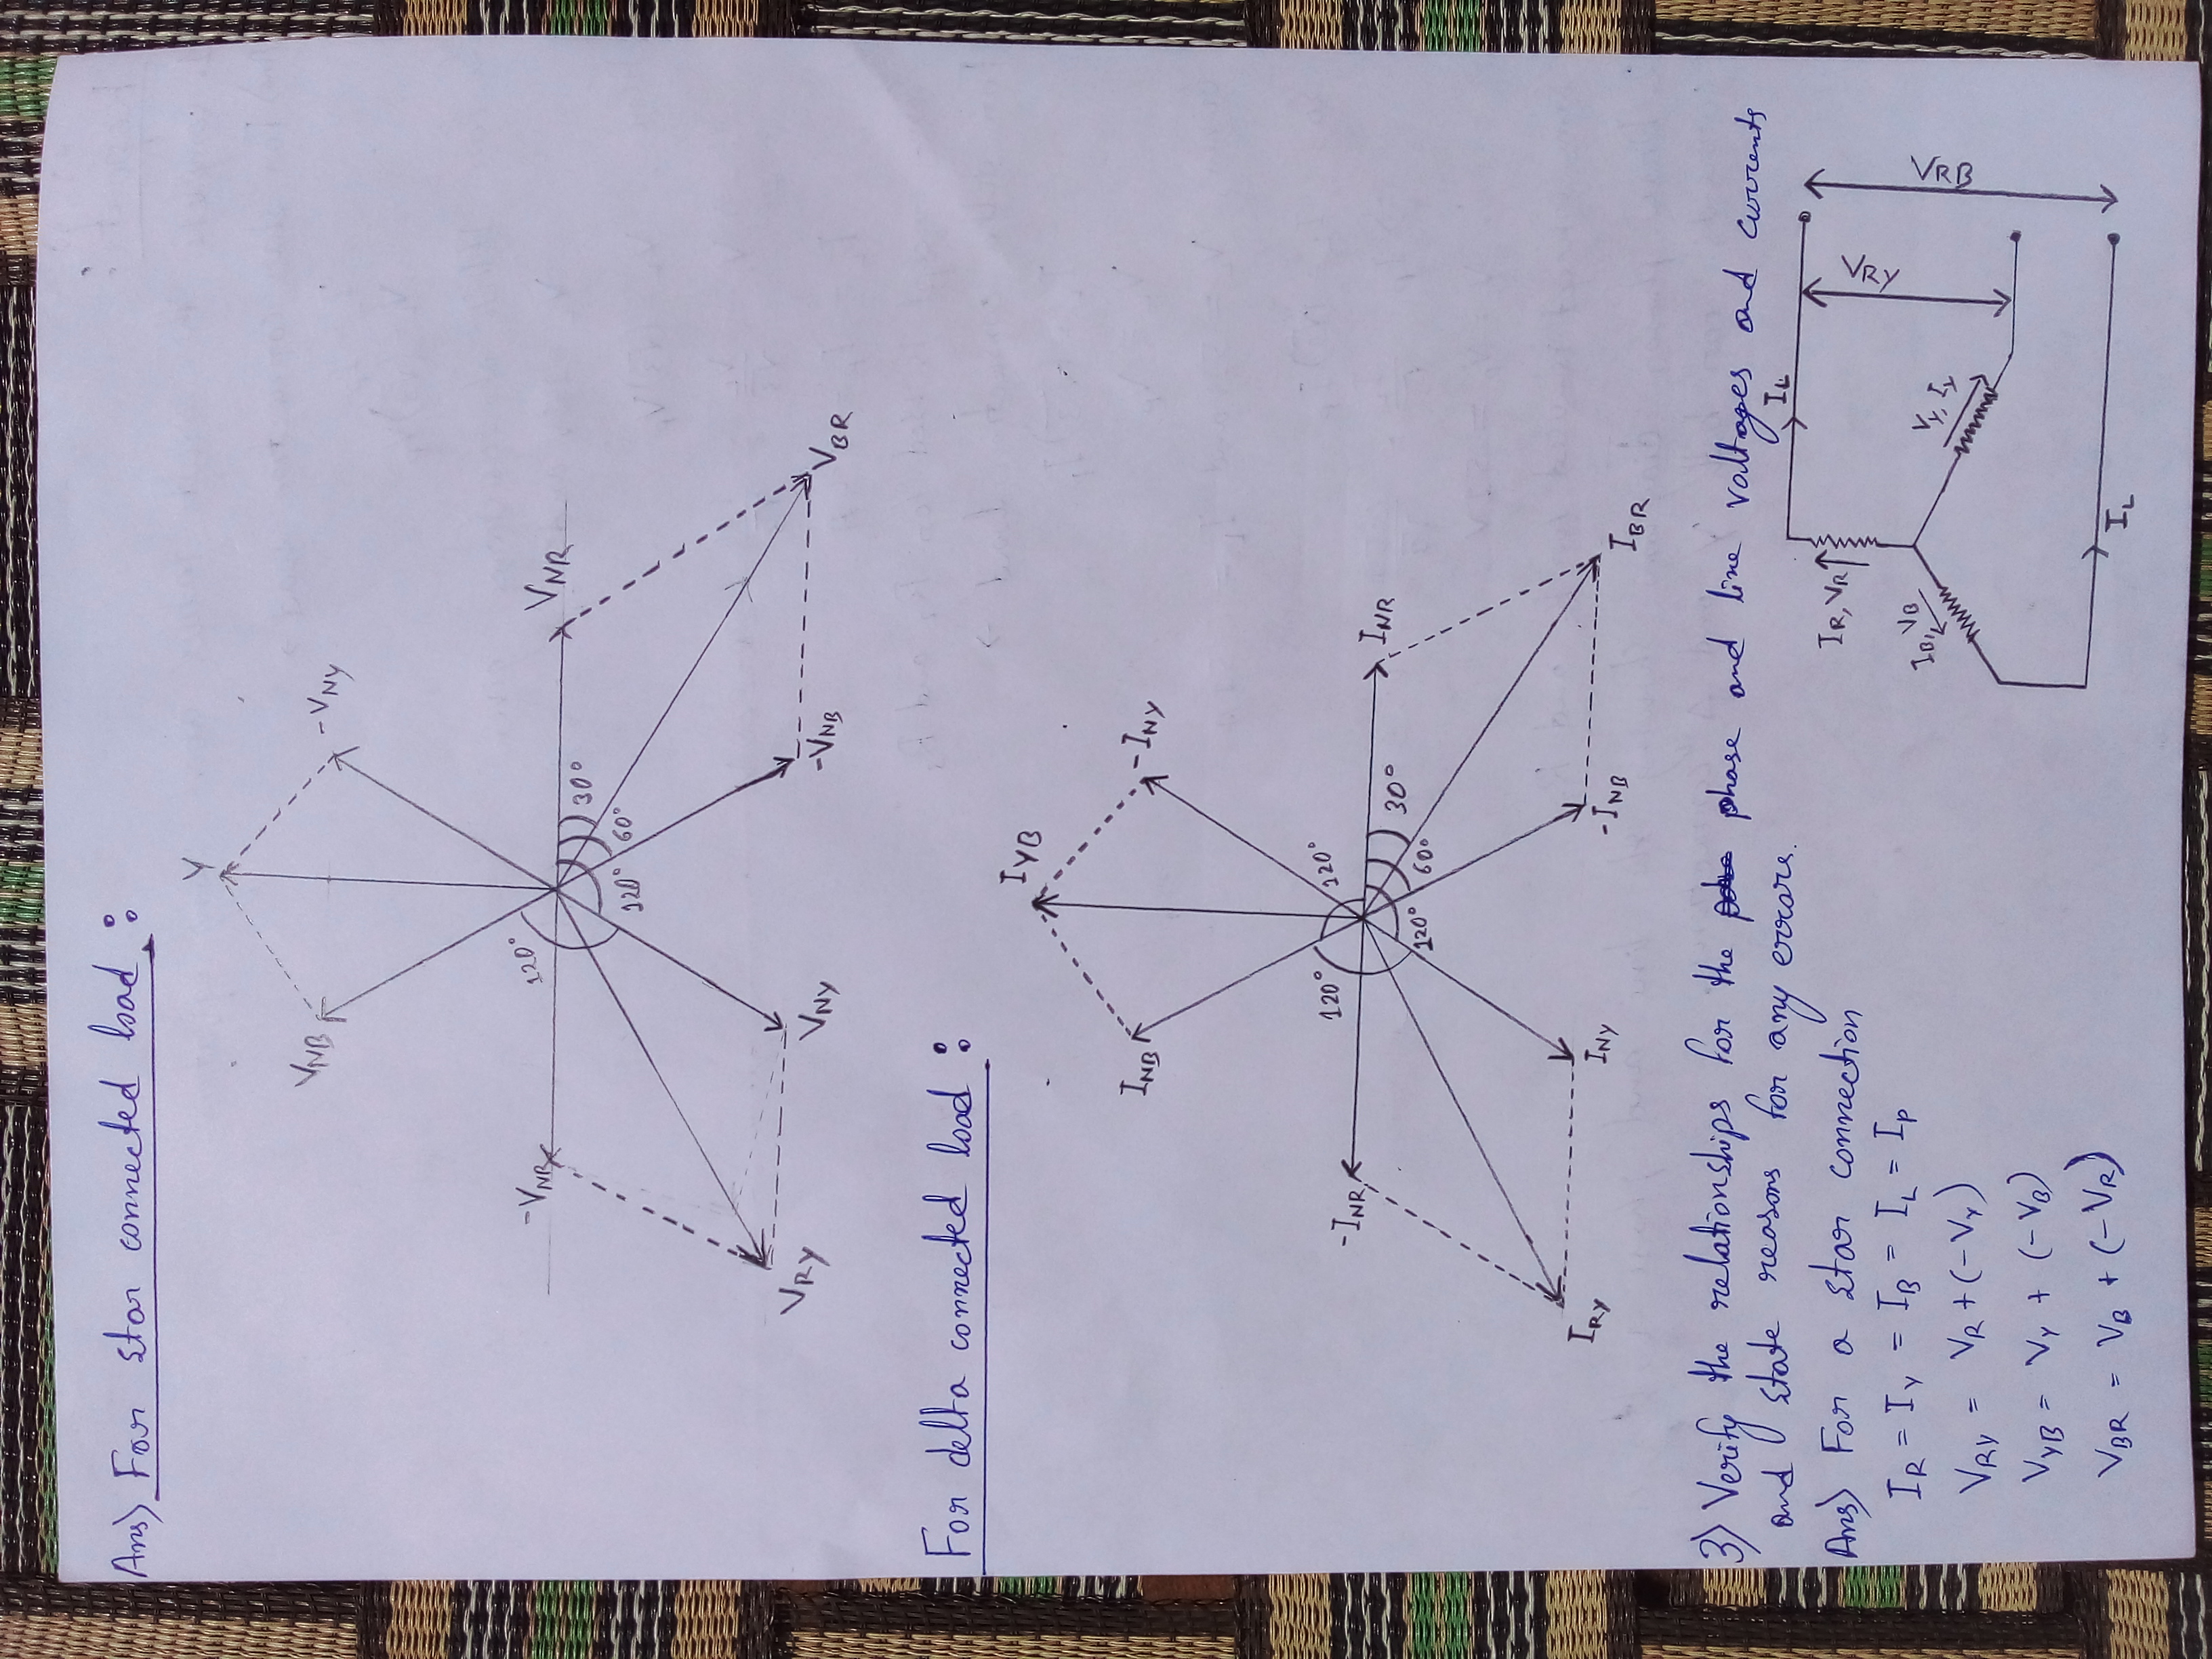 Ans) For star connected load :
Y
V_NB
-V_NY
120°
-V_NR
V_NR
30°
120°
60°
V_RY
V_NY
-V_NB
V_BR
For delta connected load :
I_YB
I_NB
-I_NY
120°
120°
-I_NR
I_NR
30°
120°
60°
I_RY
I_NY
-I_NB
I_BR
3) Verify the relationships for the phase and line voltages and currents
and state reasons for any errors.
I_L
Ans) For a star connection
I_R, V_R
V_RY
I_R = I_Y = I_B = I_L = I_P
I_B, V_B
V_Y, I_Y
V_RB
V_RY = V_R + (-V_Y)
V_YB = V_Y + (-V_B)
V_BR = V_B + (-V_R)
I_L